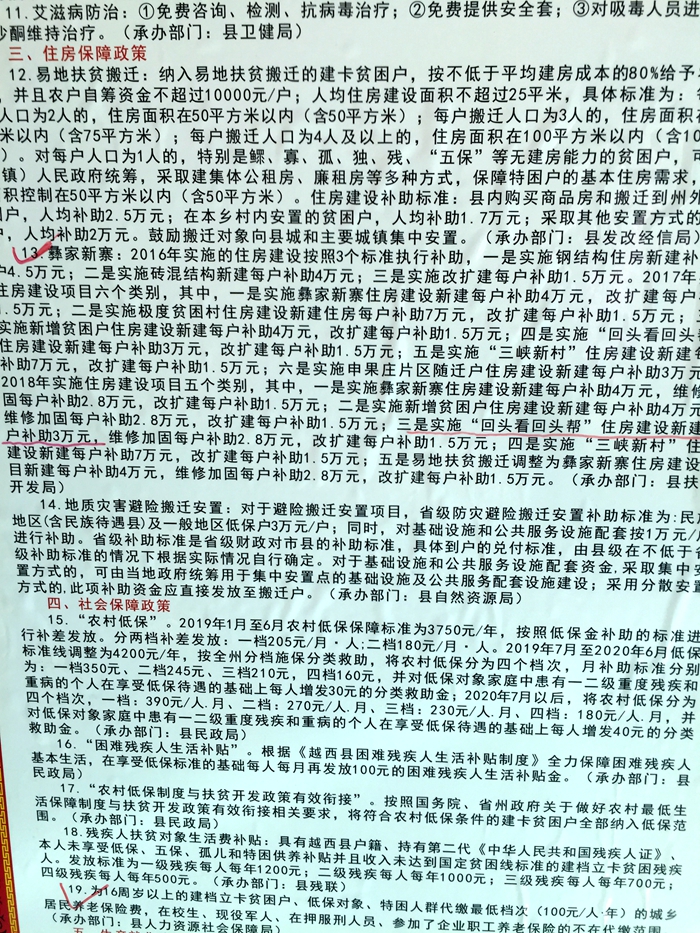 11.艾滋病防治：①免费咨询、检测、抗病毒治疗；②免费提供安全套；③对吸毒人员进
沙酮维持治疗。（承办部门：县卫健局）
三、住房保障政策
12.易地扶贫搬迁：纳入易地扶贫搬迁的建卡贫困户，按不低于平均建房成本的80%给予
，并且农户自筹资金不超过10000元/户；人均住房建设面积不超过25平米，具体标准为：
人口为2人的，住房面积在50平方米以内（含50平方米）；每户搬迁人口为3人的，住房面积
米以内（含75平方米）；每户搬迁人口为4人及以上的，住房面积在100平方米以内（含10
）。对每户人口为1人的，特别是鳏、寡、孤、独、残、“五保”等无建房能力的贫困户，
镇）人民政府统筹，采取建集体公租房、廉租房等多种方式，保障特困户的基本住房需求，
积控制在50平方米以内（含50平方米）。住房建设补助标准：县内购买商品房和搬迁到州外
户，人均补助2.5万元；在本乡村内安置的贫困户，人均补助1.7万元；采取其他安置方式的
，人均补助2万元。鼓励搬迁对象向县城和主要城镇集中安置。（承办部门：县发改经信局）
13.彝家新寨：2016年实施的住房建设按照3个标准执行补助，一是实施钢结构住房新建补
户4.5万元；二是实施砖混结构新建每户补助4万元；三是实施改扩建每户补助1.5万元。2017年
住房建设项目六个类别，其中，一是实施彝家新寨住房建设新建每户补助4万元，改扩建每户
.5万元；二是实施极度贫困村住房建设新建住房每户补助7万元，改扩建每户补助1.5万元；
实施新增贫困户住房建设新建每户补助4万元，改扩建每户补助1.5万元；四是实施“回头看回头帮
住房建设新建每户补助3万元，改扩建每户补助1.5万元；五是实施“三峡新村”住房建设新建
补助7万元，改扩建每户补助1.5万元；六是实施申果庄片区随迁户住房建设每户补助3万元
2018年实施住房建设项目五个类别，其中，一是实施彝家新寨住房建设新建每户补助4万元，维修
固每户补助2.8万元，改扩建每户补助1.5万元；二是实施新增贫困户住房建设新建每户补助4万元
维修加固每户补助2.8万元，改扩建每户补助1.5万元；三是实施“回头看回头帮”住房建设新建
户补助3万元，维修加固每户补助2.8万元，改扩建每户补助1.5万元；四是实施“三峡新村”住
建设新建每户补助7万元，改扩建每户补助1.5万元；五是易地扶贫搬迁调整为彝家新寨住房建设
目新建每户补助4万元，维修加固每户补助2.8万元，改扩建每户补助1.5万元。（承办部门：县扶
开发局）
14.地质灾害避险搬迁安置：对于避险搬迁安置项目，省级防灾避险搬迁安置补助标准为:民
地区(含民族待遇县)及一般地区低保户3万元/户；同时，对基础设施和公共服务设施配套按1万元/
进行补助。省级补助标准是省级财政对市县的补助标准，具体到户的兑付标准，由县级在不低于
级补助标准的情况下根据实际情况自行确定。对于基础设施和公共服务设施配套资金.采取集中安
置方式的，可由当地政府统筹用于集中安置点的基础设施及公共服务配套设施建设；采用分散安置
方式的.此项补助资金应直接发放至搬迁户。（承办部门：县自然资源局）
四、社会保障政策
15.“农村低保”。2019年1月至6月农村低保保障标准为3750元/年，按照低保金补助的标准进
行补差发放。分两档补差发放：一档205元/月·人;二档180元/月·人。2019年7月至2020年6月低保
标准线调整为4200元/年，按全州分档施保分类救助，将农村低保分为四个档次，月补助标准分别
为：一档350元、二档245元、三档210元，四档160元，并对低保对象家庭中患有一二级重度残疾和
重病的个人在享受低保待遇的基础上每人增发30元的分类救助金；2020年7月以后，将农村低保分为
四个档次，一档：390元/人.月、二档：270元/人.月、三档：230元/人.月、四档：180元/人.月，并
对低保对象家庭中患有一二级重度残疾和重病的个人在享受低保待遇的基础上每人增发40元的分类
救助金。（承办部门：县民政局）
16.“困难残疾人生活补贴”。根据《越西县困难残疾人生活补贴制度》全力保障困难残疾人
基本生活，在享受低保标准的基础每人每月再发放100元的困难残疾人生活补贴金。（承办部门：县
民政局）
17.“农村低保制度与扶贫开发政策有效衔接”。按照国务院、省州政府关于做好农村最低生
活保障制度与扶贫开发政策有效衔接相关要求，将符合农村低保条件的建卡贫困户全部纳入低保范
围。（承办部门：县民政局）
18.残疾人扶贫对象生活费补贴：具有越西县户籍、持有第二代《中华人民共和国残疾人证》、
本人未享受低保、五保、孤儿和特困供养补贴并且收入未达到国定贫困线标准的建档立卡贫困残疾
人。发放标准为一级残疾每人每年1200元；二级残疾每人每年1000元；三级残疾每人每年700元；
四级残疾每人每年500元。（承办部门：县残联）
19.为16周岁以上的建档立卡贫困户、低保对象、特困人群代缴最低档次（100元/人·年）的城乡
居民养老保险费，在校生、现役军人、在押服刑人员、参加了企业职工养老保险的不在代缴范围
（承办部门：县人力资源社会保障局）